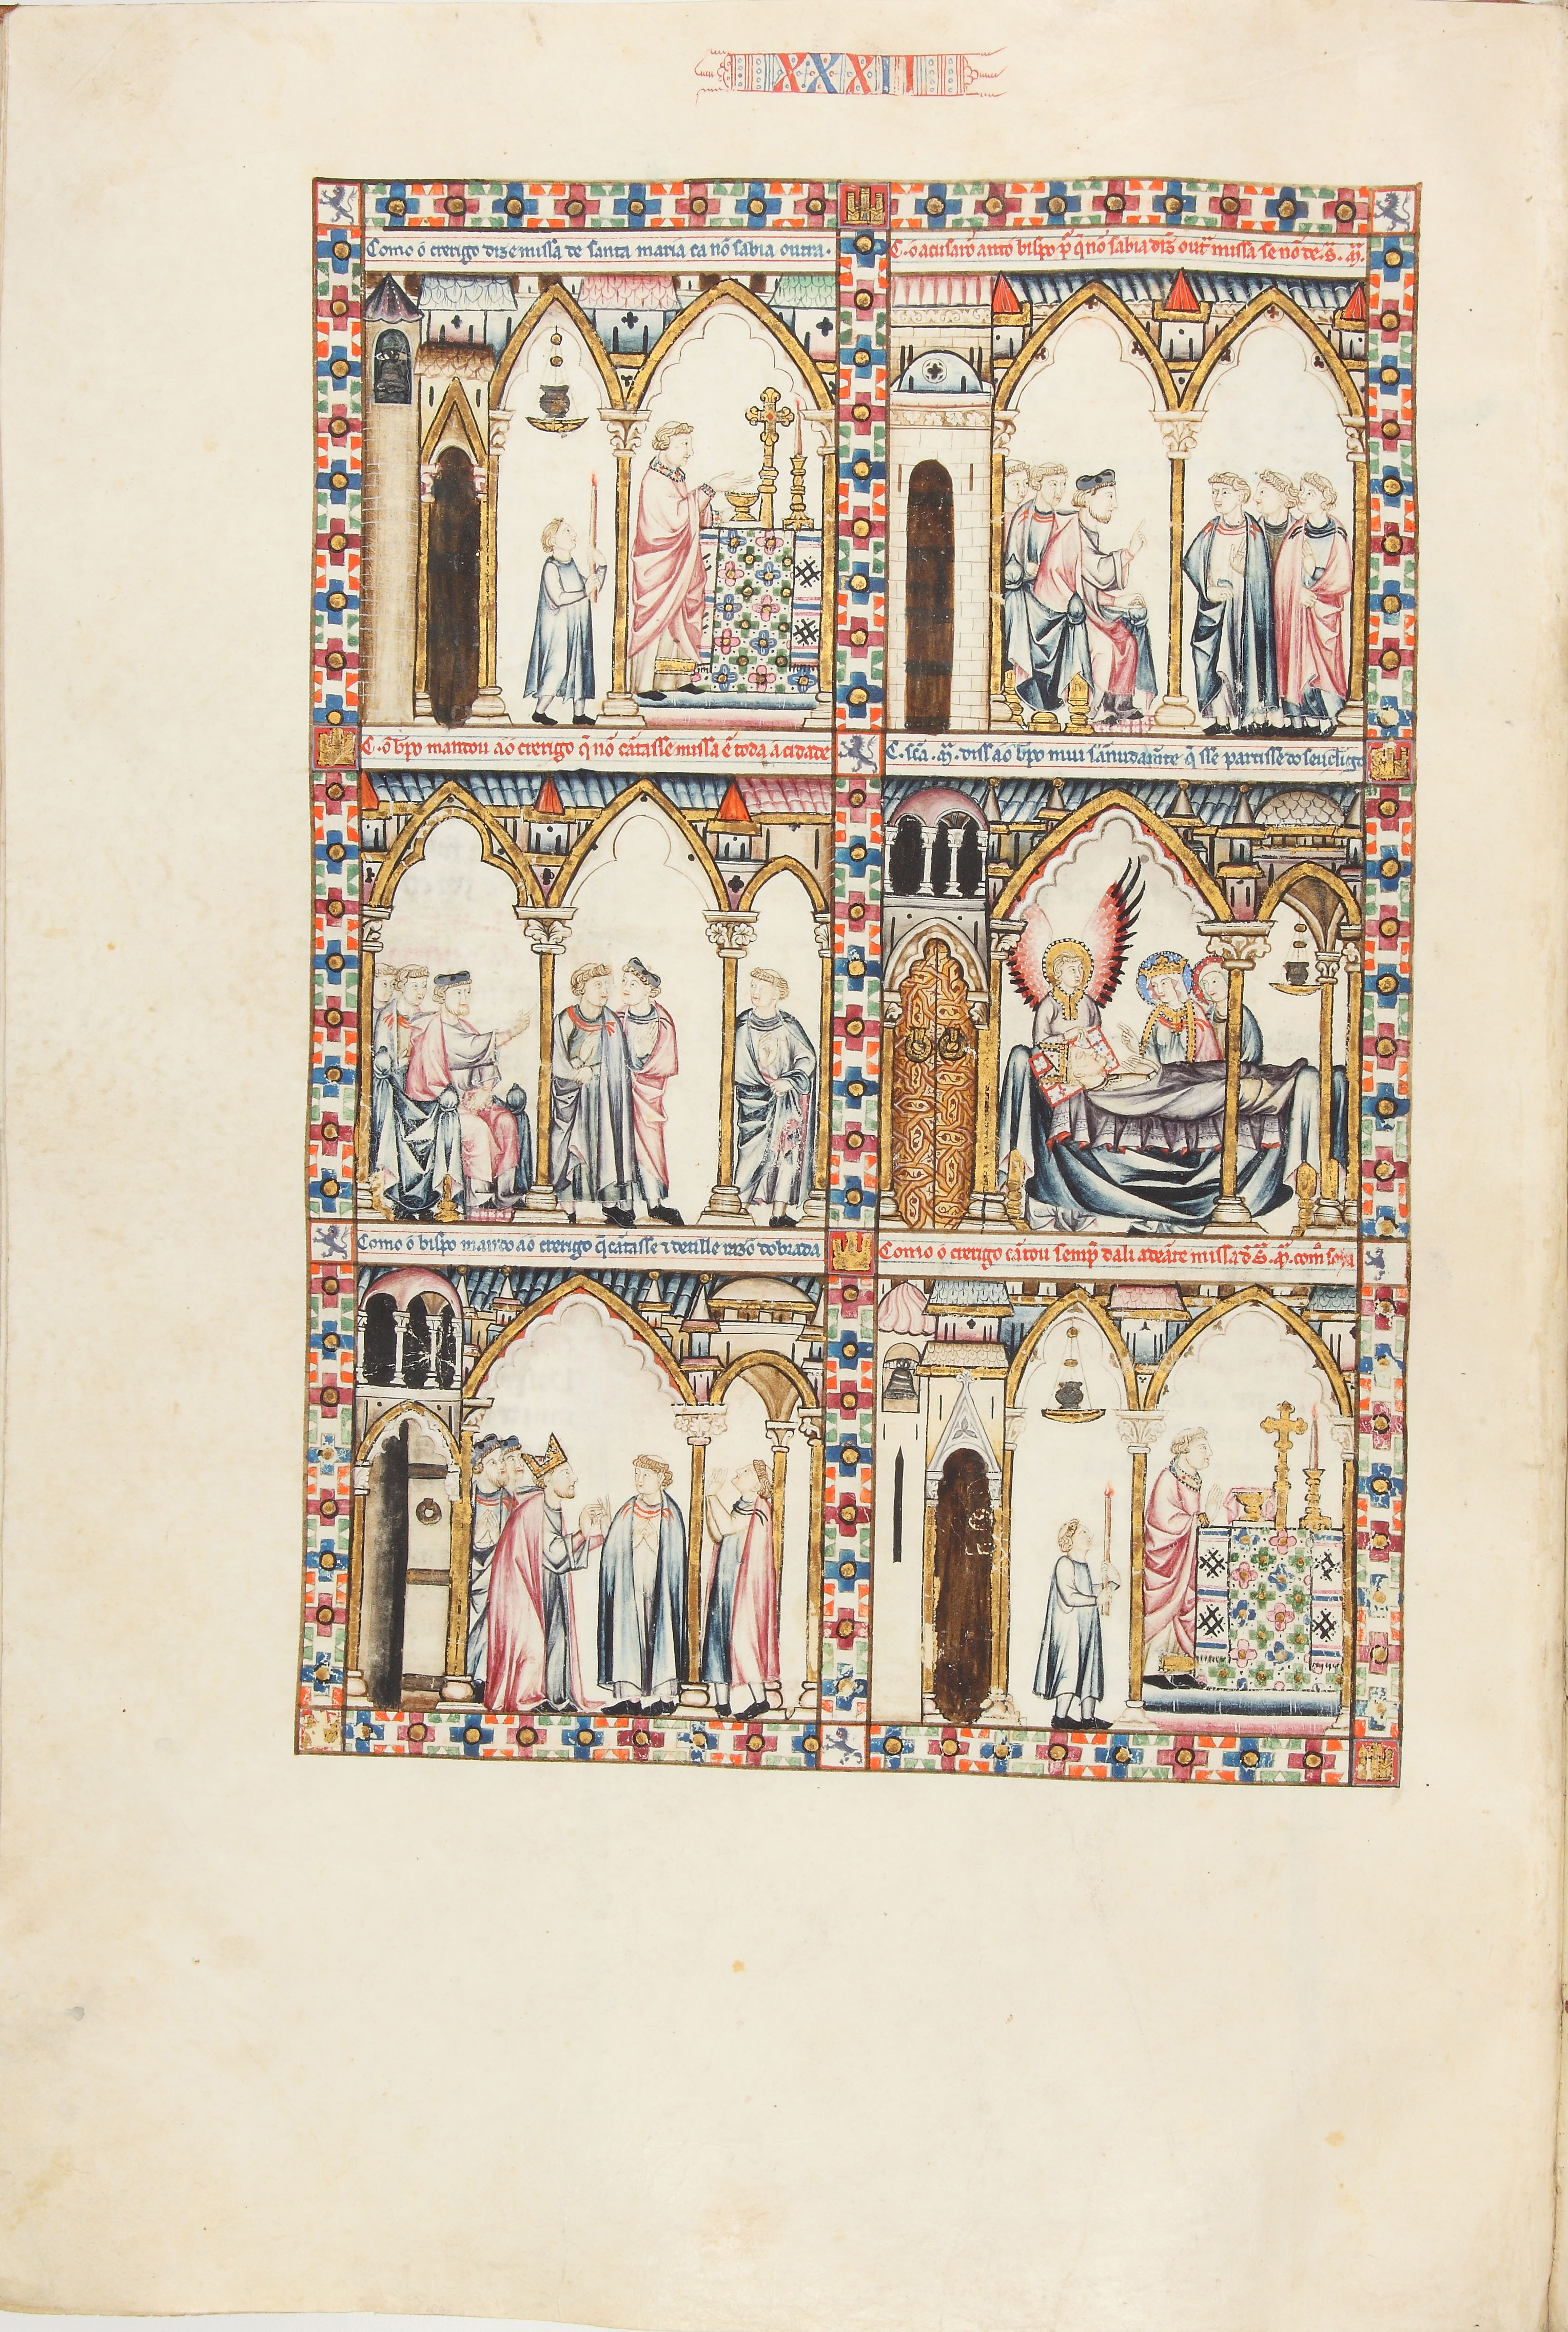 XXXII
Como o crerigo dize missa de santa maria ca nō sabia outra.
C. o acusarō anto bispo p̄ q̄ nō sabia diz̄ out̄ missa se nō de .S. M̄.
C. o b̄po mandou ao crerigo q̄ nō cātasse missa ē toda a cidade
C. sc̄a .M̄. diss ao b̄po mui sānudamēte q̄ sse partisse do seu cl̄igo
Como o bispo mandó ao crerigo q̄ cātasse ⁊ detille razō dobrada
Como o crerigo cātou semp̄ dali adeāte missa d̄ S. M̄. com̄ soya